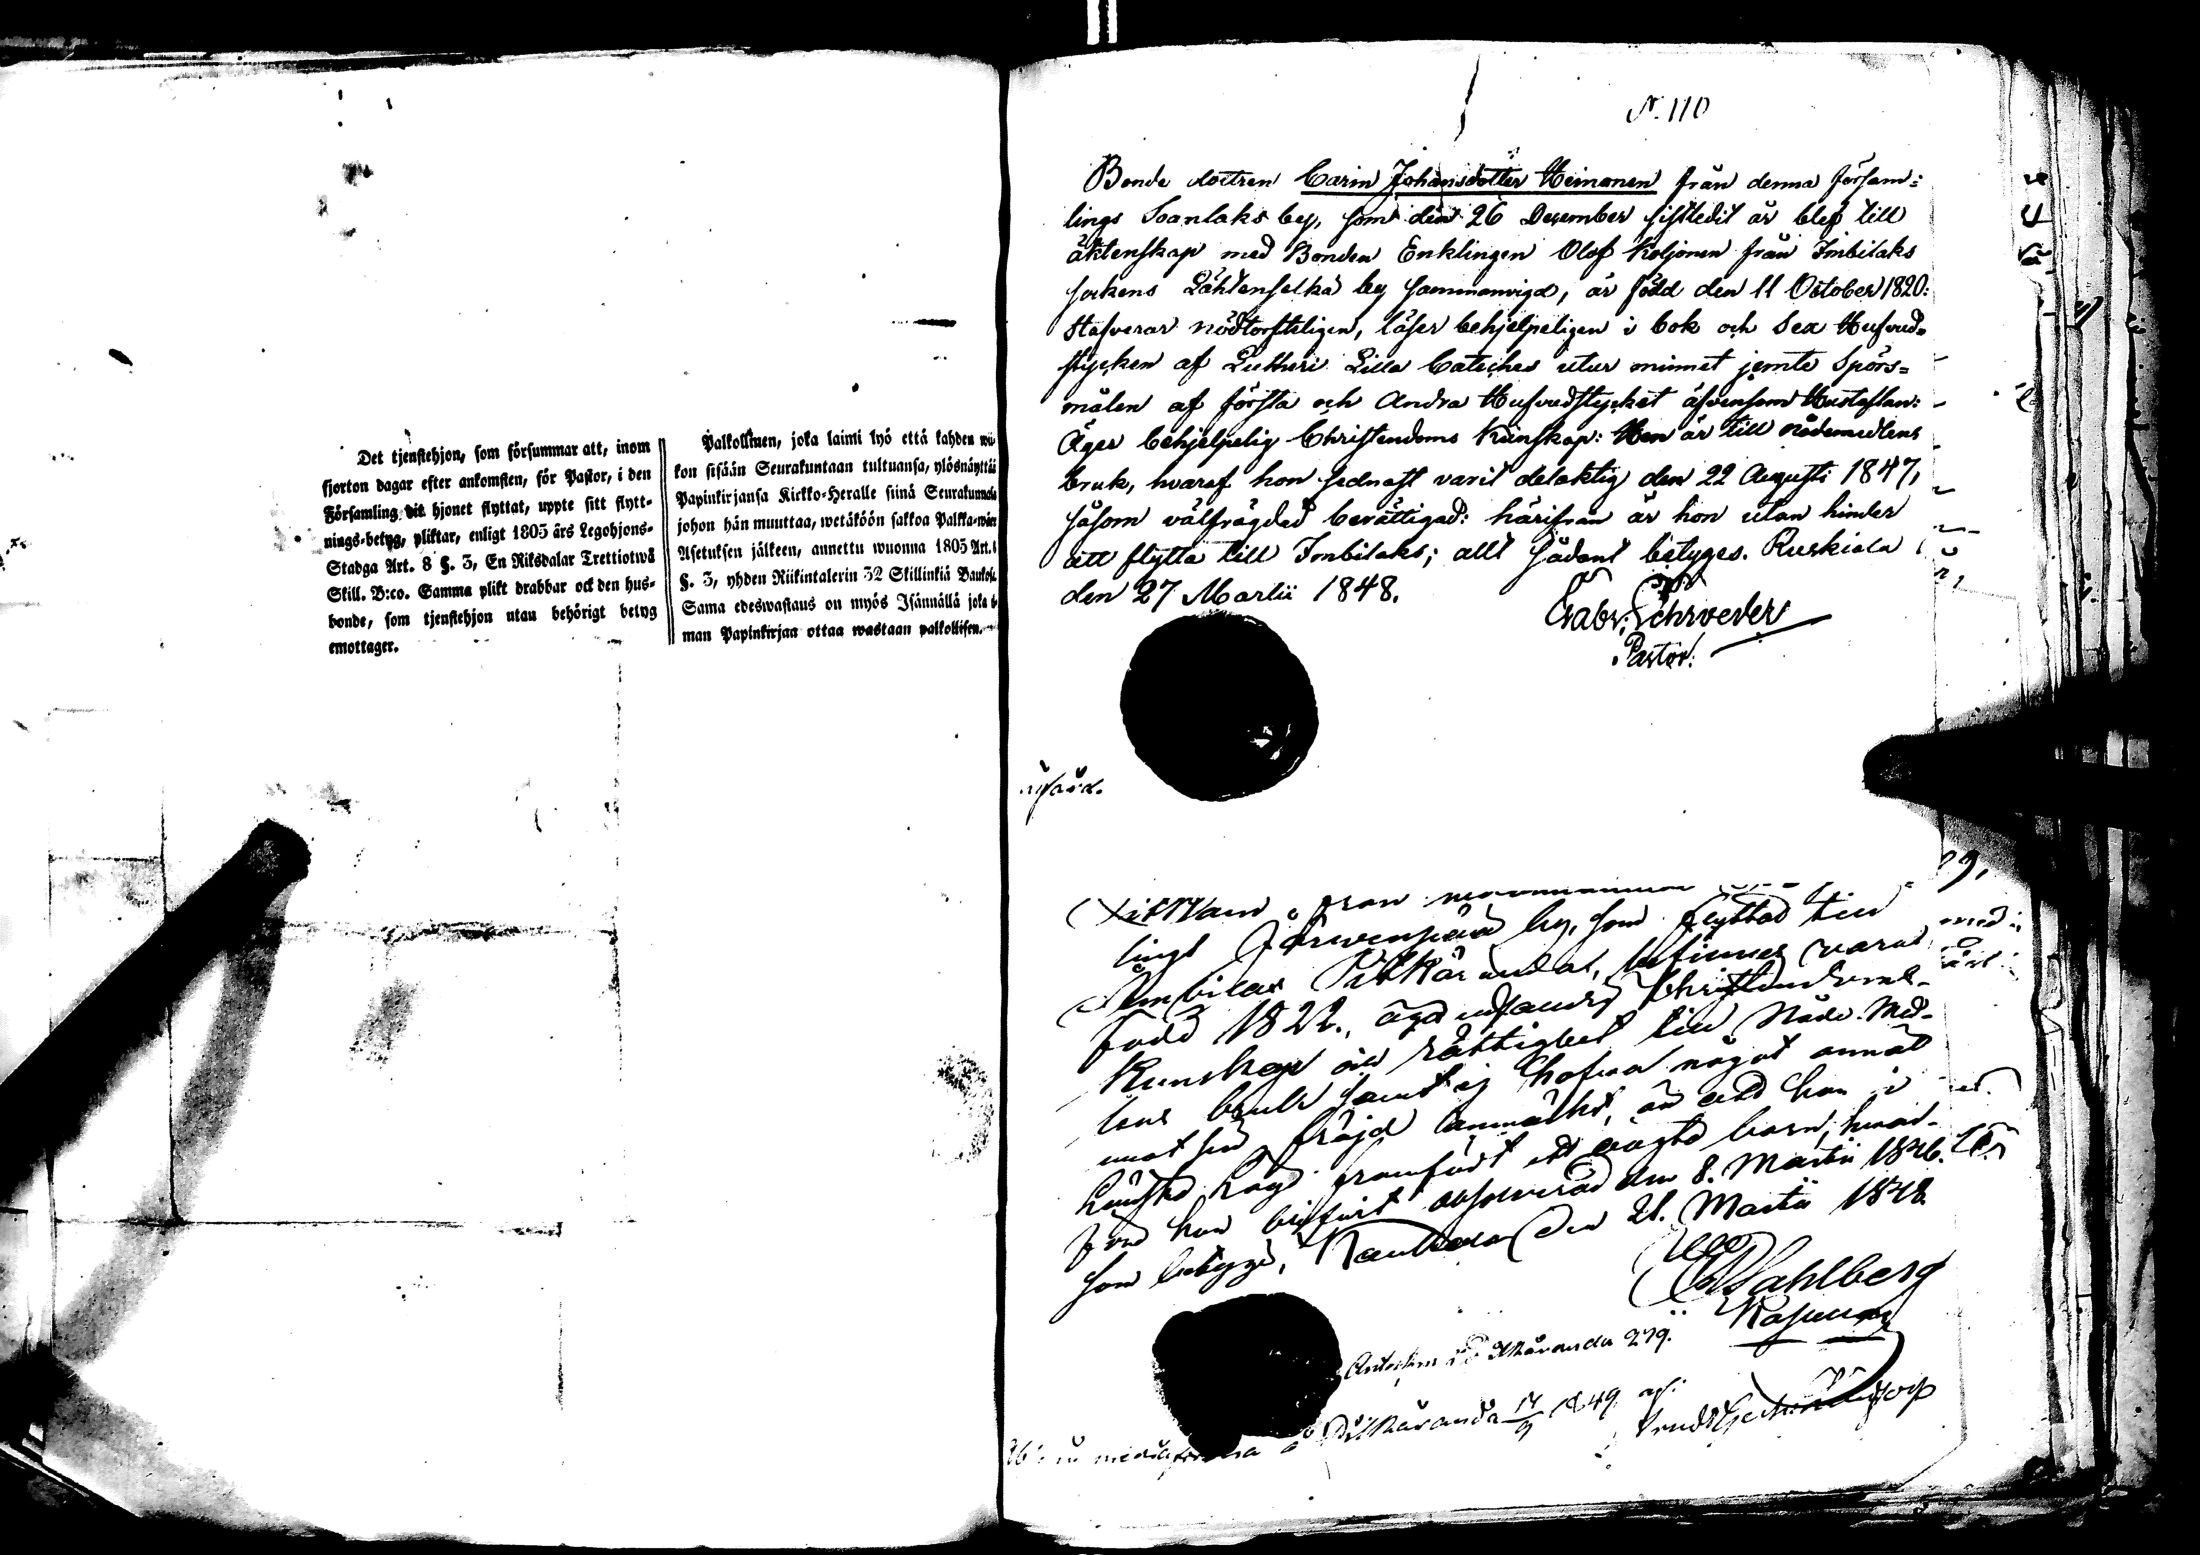 Det tjenstehjon, som försummar att, inom
fjorton dagar efter ankomsten, för Pastor, i den
Församling dit hjonet flyttat, uppte sitt flytt-
nings-betyg, pliktar, enligt 1805 års Legohjons-
Stadga Art. 8 §. 3, En Riksdalar Trettiotwå
Skill. B:co. Samma plikt drabbar ock den hus-
bonde, som tjenstehjon utan behörigt betyg
emottager.
Palkollinen, joka laimi lyö että kahden wii-
kon sisään Seurakuntaan tultuansa, ylösnäyttää
Papinkirjansa Kirkko-Heralle siinä Seurakunnasa
johon hän muuttaa, wetäköön sakkoa Palkka-wäen
Asetuksen jälkeen, annettu wuonna 1805 Art. 8
§. 3, yhden Riikintalerin 32 Skillinkiä Bankosa.
Sama edeswastaus on myös Isännällä joka il-
man Papinkirjaa ottaa wastaan palkollisen.
N. 110
Bonde dottren Carin Johansdotter Heinonen från denna försam:
lings Soanlaks by, som den 26 December sistledit år blef till
äktenskap med Bonden Enklingen Olof Koljonen från Imbilaks
sockens Lähtenselkä by sammanvigd, är född den 11 October 1820:
Stafverar nödtorfteligen, läser behjelpeligen i bok och Sex Hufvud-
stycken af Lutheri Lilla Cateches utur minnet jemte Spörs=
målen af första och Andra Hufvudstycket äfvensom Hustaflan:
Äger behjelpelig Christendoms Kunskap: Hon är till nådemedlens
bruk, hvaraf hon sednast varit delaktig den 22 Augusti 1847,
såsom välfrägdad berättigad: härifrån är hon utan hinder
att flytta till Imbilaks; allt sådant betyges. Ruskiala
den 27 Martii 1848.
Gabr. Schroeder
Pastor.
från
lings Järwenpää by, som flyttad till
Imbilax Pitkäranda, befinnes vara
född 1822., äga Christendoms-
Kunskap och rättighet till Nåde-Med-
lens bruk samt ej hafva något annat
emot sin fräjd anmärkt, än att hon i
framfödt ett oägta barn, hvar-
före hon blifvit absolverad den 8. Martii 1846.
som betygar, den 21. Martii 1848.
Sahlberg
Antecknn Pitkäranda 279.
å Pitkäranda 17/9 1849